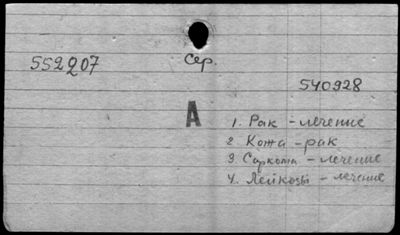 552207
Сер.
540928
А
1. Рак - лечение
2 Кожа - рак
3. Саркома - лечение
4. Лейкозы - лечение